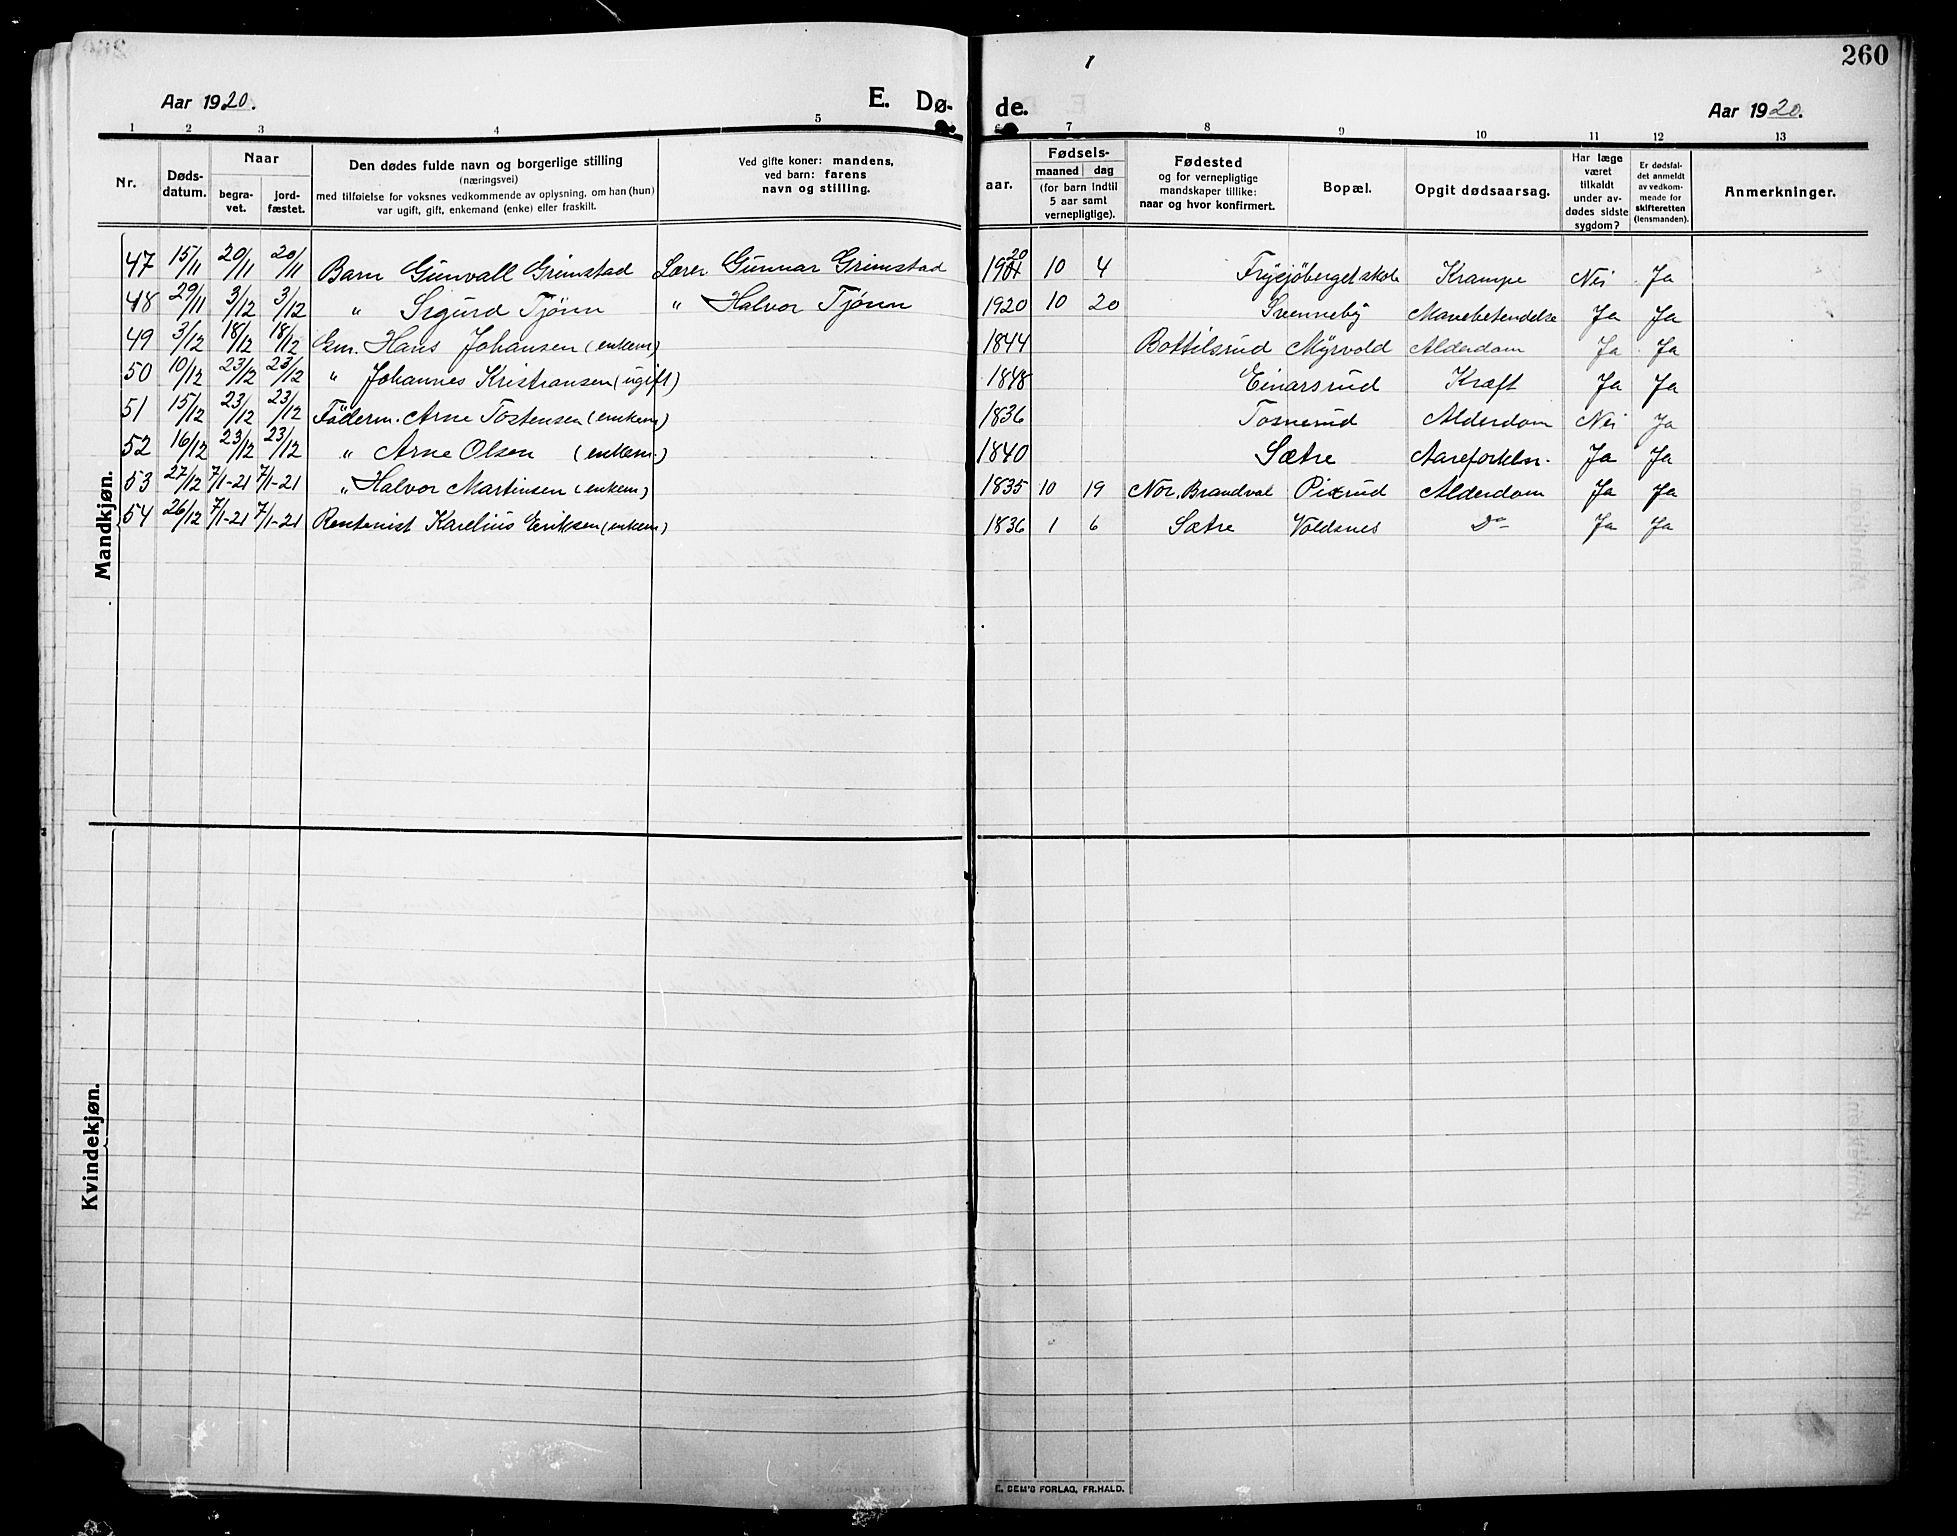 260
Aar 1920.
E. Dø-
de.
Aar 1920.
1 2 3 4 5 6 7 8 9 10 11 12 13
Nr.
Døds-
datum.
Naar
begra-
vet.
jord-
fæstet.
Den dødes fulde navn og borgerlige stilling
(næringsvei)
med tilføielse for voksnes vedkommende av oplysning, om han (hun)
var ugift, gift, enkemand (enke) eller fraskilt.
Ved gifte koner: mandens,
ved barn: farens
navn og stilling.
aar.
Fødsels-
maaned dag
(for barn indtil
5 aar samt
vernepligtige).
Fødested
og for vernepligtige
mandskaper tillike:
naar og hvor konfirmert.
Bopæl.
Opgit dødsaarsag.
Har læge
været
tilkaldt
under av-
dødes sidste
sygdom?
Er dødsfal-
det anmeldt
av vedkom-
mende for
skifteretten
(lensmanden).
Anmerkninger.
Mandkjøn.
47 15/11 20/11 20/11 Barn Gunvall Grimstad Lærer Gunnar Grimstad 1920 10 4 Frysjøberget skole Krampe Nei Ja
48 29/11 3/12 3/12 " Sigurd Tjønn " Halvor Tjønn 1920 10 20 Svenneby Mavebetendelse Ja Ja
49 3/12 18/12 18/12 Gm. Hans Johansen (enkem) 1844 Bottilsrud Myrvold Alderdom Ja Ja
50 10/12 23/12 23/12 " Johannes Kristiansen (ugift) 1848 Einarsrud Kræft Ja Ja
51 15/12 23/12 23/12 Føderm. Arne Tostensen (enkem) 1836 Tosnerud Alderdom Nei Ja
52 16/12 23/12 23/12 " Arne Olsen (enkem.) 1840 Sætre Aareforkaln. Ja Ja
53 27/12 7/1-21 7/1-21 " Halvor Martinsen (enkem) 1835 10 19 Nor, Brandval Pixrud Alderdom Ja Ja
54 26/12 7/1-21 7/1-21 Rentenist Karelius Eriksen (enkem) 1836 1 6 Sætre Voldsnes Do Ja Ja
Kvindekjøn.
E. SEM'S FORLAG, FR.HALD.